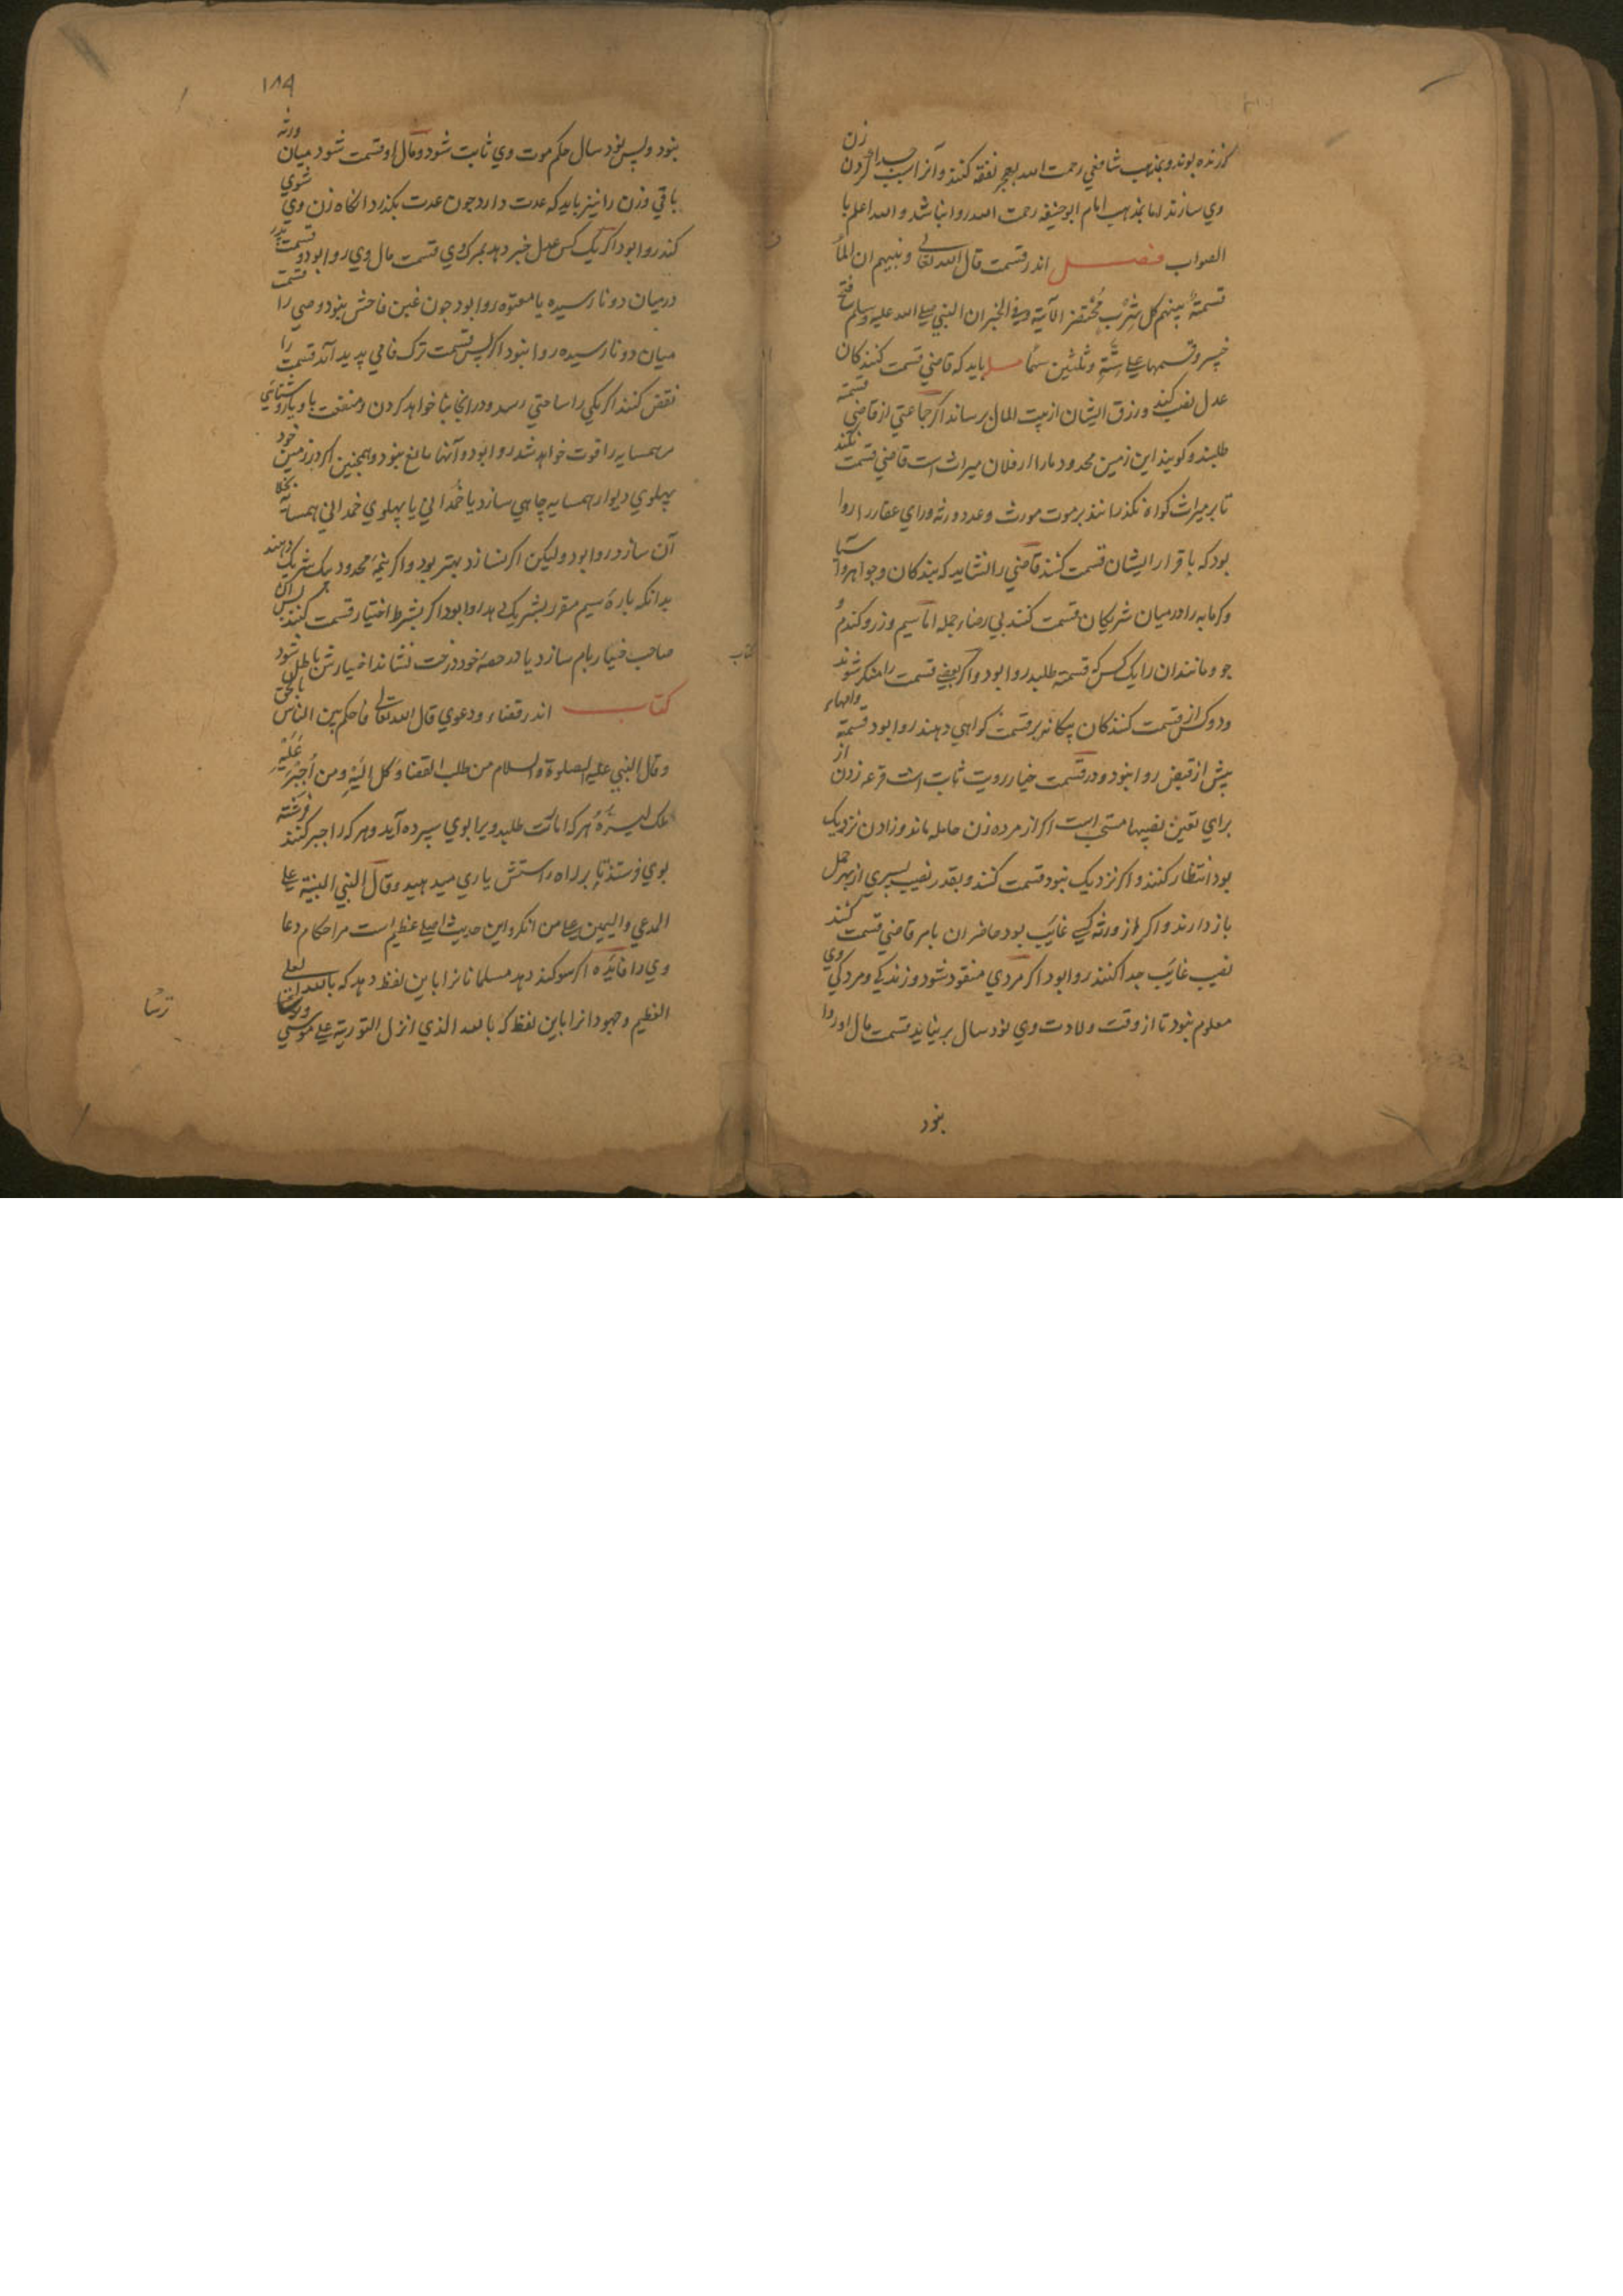 که زنده بوند و بمذهب شافعي رحمت الله بعجز نفقه کنند و آنرا سبب جدا کردن زن
وي سازند اما بمذهب امام ابوحنيفه رحمت الله روا نباشد والله اعلم با
الصواب فصل اندر قسمت قال الله تعالی ونبيهم ان الماُ
قسمةٌ بينهم کل شربٍ مُحْتضر الآية وفي الخبر ان النبي صلی الله عليه وسلم فتح
خيبر وقسمها علی ستة وثلثين سهمًا مسله بايد که قاضي قسمت کنندکان
عدل نصب کند و رزق ايشان از بيت المال برساند اکر جماعتي از قاضي قسمة
طلبند و کويند اين زمين محدود مارا از فلان ميراث است قاضي قسمت نکند
تا بر ميراث کواه نکذرانند بر موت مورث و عدد ورثه و راي عقار را روا
بود که باقرار ايشان قسمت کنند قاضي را نشايد که بندکان و جواهر و آسيا
و کرمابه را در ميان شريکان قسمت کنند بي رضاء جمله اما سيم و زر و کندم و
جو و مانند ان را يک کس که قسمة طلبد روا بود و اکر بعضي قسمت را منکر شوند
و دو کس از قسمت کنندکان بر قسمت کواهي دهند روا بود قسمة وامهاء
پيش از قبض روا نبود و در قسمت خيار رويت ثابت است قرعه زدن از
براي تعين نصيبها مستحب است اکر از مرده زن حامله ماند و زادن نزديک
بود انتظار کنند و اکر نزديک نبود قسمت کنند و بقدر نصيب پسري از بهر حمل
باز دارند و اکر از ورثه کسي غايب بود حاضران بامر قاضي قسمت کنند
نصيب غايب جدا کنند روا بود اکر مردي مفقود شود و زندکي و مردکي وي
معلوم نبود تا از وقت ولادت وي نود سال بر نيايد قسمت مال او روا
نبود
۱۸۹
نبود و پس نود سال حکم موت وي ثابت شود و مال او قسمت شود ميان ورثه
باقي و زن را نيز بايد که عدت دارد چون عدت بکذرد انکاه زن وي شوي
کند روا بود اکر يک کس عدل خبر دهد بمرک وي قسمت مال وي روا بود و قسمت پدر
درميان دو نارسيده يا معتوه روا بود چون غبن فاحش نبود وصي را قسمت
ميان دو نارسيده روا نبود اکر پس قسمت ترک فامي پديد آيد قسمت را
نقض کنند اکر يکي را ساحتي رسد و در انجا بنا خواهد کردن و منفعت باد و روشنائي
مر همسايه را فوت خواهد شد روا بود و آنها مانع نبود و همچنين اکر در زمين خود
پهلوي ديوار همسايه چاهي سازد يا خمداني يا پهلوي خمداني همسايه
آن سازد روا بود وليکن اکر نسازد بهتر بود و اکر نيمه محدود يک شريک دهند
بدانکه پاره سيم مقرر بشريک دهد روا بود اکر بشرط اختيار قسمت کنند پس اکر
صاحب خيار بام سازد يا در حصه خود درخت نشاند اختيارش باطل شود
کتاب اندر قضاء و دعوي قال الله تعالی فاحکم بين الناس بالحق
وقال النبي عليه الصلوة والسلام من طلب القضا وُکل اليه ومن اُجبِرَ عَلَيْه
ملک يسدده هر که امانت طلبد ويرا بوي سپرده آيد و هر که را جبر کنند فرشته
بوي فرستد تا بر راه راستش ياري ميدهد وقال النبي البينة علی
المدعي واليمين علی من انکر و اين حديث اصلي عظيم است مر احکام دعا
وي را فايده اکر سوکند دهد مسلمانانرا باين لفظ دهد که بالله تعلی
العظيم و جهودانرا باين لفظ که بالله الذي انزل التورية علی موسی و ترسا
کتاب
ترسا